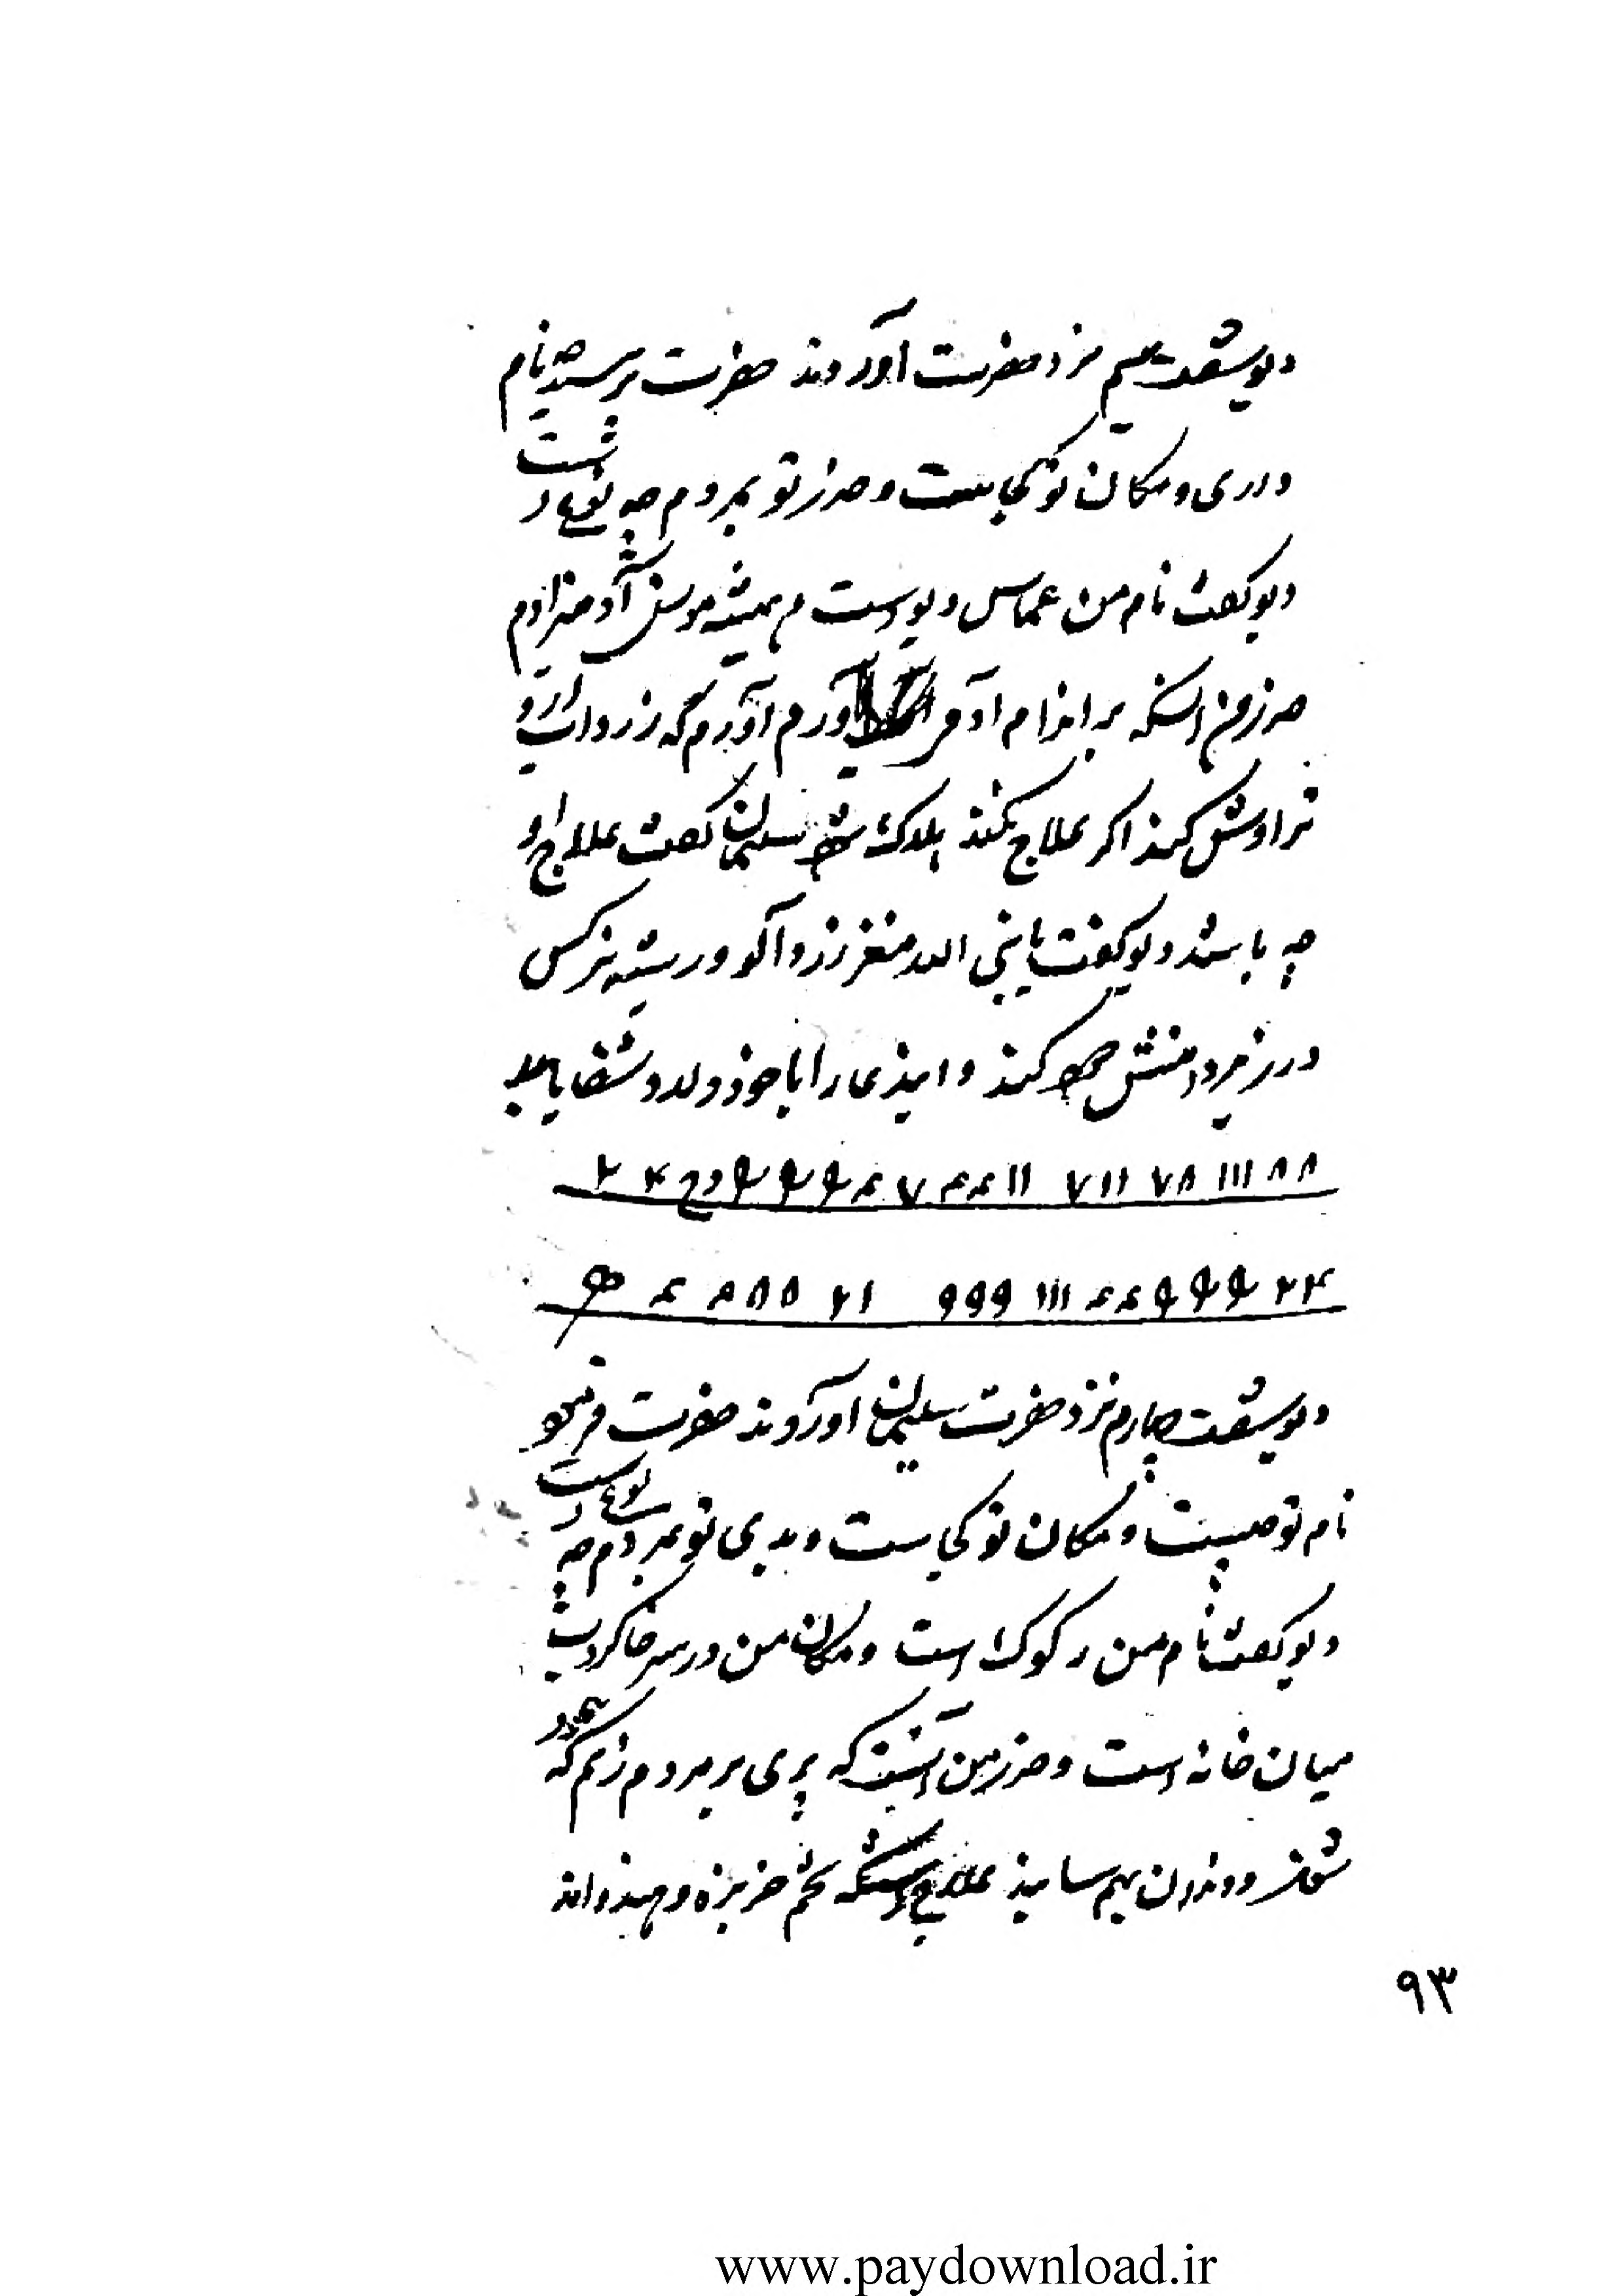 دیو شصت سیم نزد حضرت آوردند حضرت پرسید چه نام
داری و مکان تو کجاست و ضرر تو بمردم چه نوع است
دیو گفت نام من عماس دیو است همیشه مونس آدمیزادم
ضرر من اینکه بر اندام آدمی آورم که زرداب از او
تراوش کند اگر علاج نکند هلاک شود سلیمان گفت علاج او
چه باشد دیو گفت یا نبی الله مغز زردآلو و ریشه نرگس
در زیر دامنش کند و این دعا را با خود دارد شفا یابد
۸۸ ااا ۷۸ ۷اا اا ۷
۲۴ ااا ۹۹۹ ۲۱ ۸۸۸
دیو شصت چهارم نزد حضرت سلیمان آوردند حضرت فرمود
نام تو چیست و مکان تو کجاست و بدی تو بمردم چه نوع است
دیو گفت نام من رکوک است و مکان من در سر خاکروب
میان خانه است و ضرر من آنست که پری بر مردم زنم که
شود و دندان بهم ساید علاج اینکه تخم خربزه و هندوانه
۹۳
www.paydownload.ir